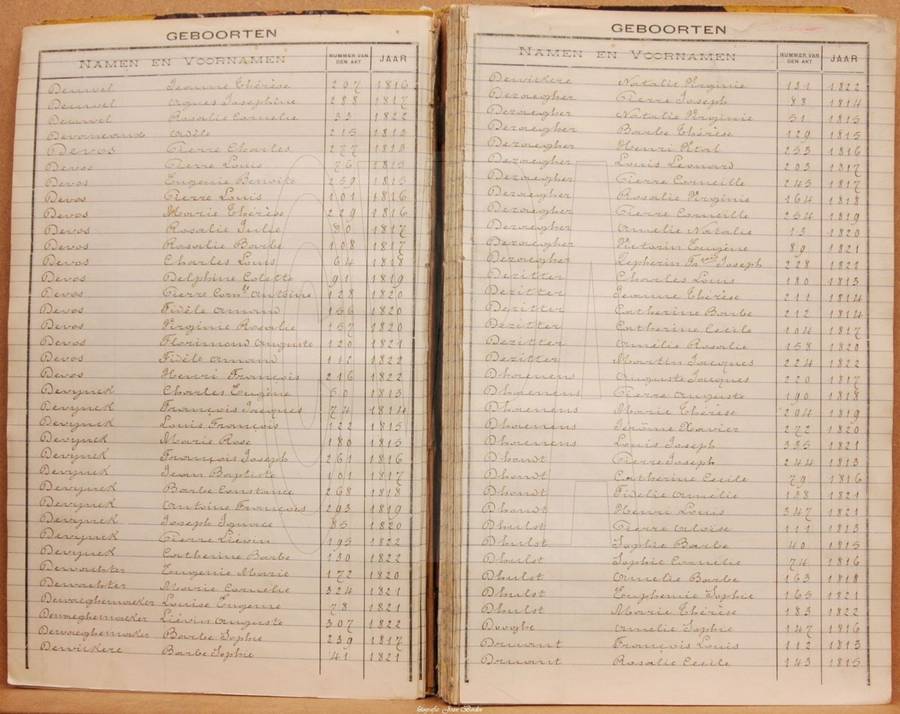 GEBOORTEN
NAMEN EN VOORNAMEN NUMMER VAN DEN AKT JAAR
Deuwel Jeanne Thérèse 297 1816
Deuwel Agnes Josephine 288 1817
Deuwel Rosalie Cornelie 33 1822
Adèle 215 1813
Devos Pierre Charles 277 1813
Devos Pierre Louis 76 1815
Devos Eugenie Benoite 259 1815
Devos Pierre Louis 101 1816
Devos Marie Thérèse 229 1816
Devos Rosalie Julie 80 1817
Devos Rosalie Barbe 108 1817
Devos Charles Louis 64 1818
Devos Delphine Colette 91 1819
Devos Pierre Antoine 128 1820
Devos Fidèle Armand 156 1820
Devos Virginie Rosalie 157 1820
Devos Florimond Auguste 120 1821
Devos Fidèle Armand 112 1822
Devos Henri François 216 1822
Devynck Charles Eugène 50 1813
Devynck François Jacques 74 1814
Devynck Louis François 122 1815
Devynck Marie Rose 180 1815
Devynck François Joseph 261 1816
Devynck Jean Baptiste 101 1817
Devynck Barbe Constance 268 1818
Devynck Antoine François 293 1819
Devynck Joseph Ignace 85 1820
Devynck Pierre Liévin 195 1822
Devynck Catherine Barbe 130 1822
Dewachter Eugenie Marie 172 1820
Dewachter Marie Cornelie 324 1821
Dewaeghemaeker Louise Eugenie 78 1821
Dewaeghemaeker Liévin Auguste 307 1822
Dewaeghemaeker Barbe Sophie 239 1817
Dewickere Barbe Sophie 41 1821
GEBOORTEN
NAMEN EN VOORNAMEN NUMMER VAN DEN AKT JAAR
Dewickere Natalie Virginie 131 1822
Dezaegher Pierre Joseph 88 1814
Dezaegher Natalie Virginie 51 1815
Dezaegher Barbe Thérèse 129 1815
Dezaegher Henri 253 1816
Dezaegher Louis Leonard 203 1817
Dezaegher Pierre Corneille 245 1817
Dezaegher Rosalie Virginie 164 1818
Dezaegher Pierre Corneille 254 1819
Dezaegher Amelie Natalie 13 1820
Dezaegher Victorin Eugène 89 1821
Dezaegher Zepherin Joseph 228 1822
Dezitter Charles Louis 180 1813
Dezitter Jeanne Thérèse 211 1814
Dezitter Catherine Barbe 212 1814
Dezitter Catherine Cecile 104 1817
Dezitter Amélie Rosalie 158 1820
Dezitter Martin Jacques 224 1822
Dhaenens Auguste Jacques 220 1817
Dhaenens Pierre Auguste 190 1818
Dhaenens Marie Thérèse 204 1819
Dhaenens Jérôme Xavier 272 1820
Dhaenens Louis Joseph 335 1821
Dhondt Pierre Joseph 244 1813
Dhondt Catherine Cecile 79 1816
Dhondt Fidelie Amélie 188 1821
Dhondt Henri Louis 347 1821
Dhulst Pierre Aloise 111 1813
Dhulst Sophie Barbe 40 1815
Dhulst Sophie Cornelie 74 1816
Dhulst Amelie Barbe 163 1818
Dhulst Euphemie Sophie 165 1821
Dhulst Marie Thérèse 183 1822
Amelie Sophie 147 1816
François Louis 112 1813
Rosalie Cecile 143 1815